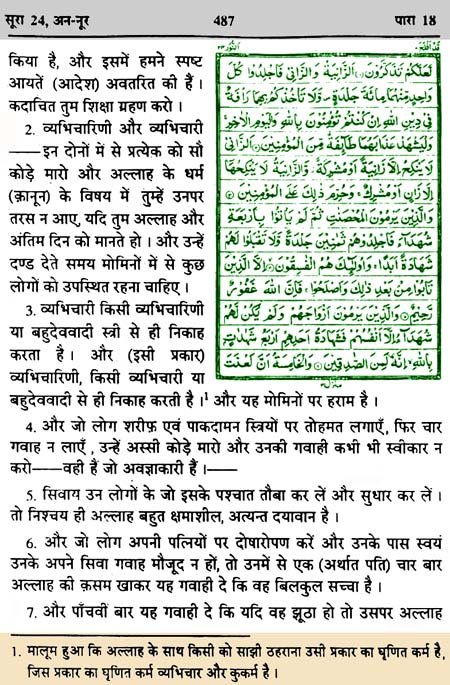 सूरा 24, अन-नूर 487 पारा 18
किया है, और इसमें हमने स्पष्ट
आयतें (आदेश) अवतरित की हैं।
कदाचित तुम शिक्षा ग्रहण करो।
2. व्यभिचारिणी और व्यभिचारी
——इन दोनों में से प्रत्येक को सौ
कोड़े मारो और अल्लाह के धर्म
(क़ानून) के विषय में तुम्हें उनपर
तरस न आए, यदि तुम अल्लाह और
अंतिम दिन को मानते हो। और उन्हें
दण्ड देते समय मोमिनों में से कुछ
लोगों को उपस्थित रहना चाहिए।
3. व्यभिचारी किसी व्यभिचारिणी
या बहुदेववादी स्त्री से ही निकाह
करता है। और (इसी प्रकार)
व्यभिचारिणी, किसी व्यभिचारी या
قد افلح
النور
لَعَلَّكُمْ تَذَكَّرُونَ اَلزَّانِيَةُ وَالزَّانِي فَاجْلِدُوا كُلَّ
وَاحِدٍ مِّنْهُمَا مِائَةَ جَلْدَةٍ وَّلَا تَأْخُذْكُمْ بِهِمَا رَأْفَةٌ
فِي دِينِ اللهِ اِنْ كُنْتُمْ تُؤْمِنُونَ بِاللهِ وَالْيَوْمِ الْاٰخِرِ
وَلْيَشْهَدْ عَذَابَهُمَا طَآئِفَةٌ مِّنَ الْمُؤْمِنِينَ اَلزَّانِي
لَا يَنْكِحُ اِلَّا زَانِيَةً اَوْ مُشْرِكَةً وَّالزَّانِيَةُ لَا يَنْكِحُهَا
اِلَّا زَانٍ اَوْ مُشْرِكٌ وَحُرِّمَ ذٰلِكَ عَلَى الْمُؤْمِنِينَ
وَالَّذِينَ يَرْمُونَ الْمُحْصَنٰتِ ثُمَّ لَمْ يَأْتُوا بِاَرْبَعَةِ
شُهَدَآءَ فَاجْلِدُوهُمْ ثَمٰنِينَ جَلْدَةً وَّلَا تَقْبَلُوا لَهُمْ
شَهَادَةً اَبَدًا وَاُولٰٓئِكَ هُمُ الْفٰسِقُونَ اِلَّا الَّذِينَ
تَابُوا مِنْ بَعْدِ ذٰلِكَ وَاَصْلَحُوا فَاِنَّ اللهَ غَفُورٌ
رَّحِيمٌ وَالَّذِينَ يَرْمُونَ اَزْوَاجَهُمْ وَلَمْ يَكُنْ لَّهُمْ
شُهَدَآءُ اِلَّا اَنْفُسُهُمْ فَشَهَادَةُ اَحَدِهِمْ اَرْبَعُ شَهٰدٰتٍ
بِاللهِ اِنَّهُ لَمِنَ الصّٰدِقِينَ وَالْخَامِسَةُ اَنَّ لَعْنَتَ
बहुदेववादी से ही निकाह करती है।¹ और यह मोमिनों पर हराम है।
4. और जो लोग शरीफ़ एवं पाकदामन स्त्रियों पर तोहमत लगाएँ, फिर चार
गवाह न लाएँ, उन्हें अस्सी कोड़े मारो और उनकी गवाही कभी भी स्वीकार न
करो——वही हैं जो अवज्ञाकारी हैं।——
5. सिवाय उन लोगों के जो इसके पश्चात तौबा कर लें और सुधार कर लें।
तो निश्चय ही अल्लाह बहुत क्षमाशील, अत्यन्त दयावान है।
6. और जो लोग अपनी पत्नियों पर दोषारोपण करें और उनके पास स्वयं
उनके अपने सिवा गवाह मौजूद न हों, तो उनमें से एक (अर्थात पति) चार बार
अल्लाह की क़सम खाकर यह गवाही दे कि वह बिलकुल सच्चा है।
7. और पाँचवीं बार यह गवाही दे कि यदि वह झूठा हो तो उसपर अल्लाह
1. मालूम हुआ कि अल्लाह के साथ किसी को साझी ठहराना उसी प्रकार का घृणित कर्म है,
जिस प्रकार का घृणित कर्म व्यभिचार और कुकर्म है।